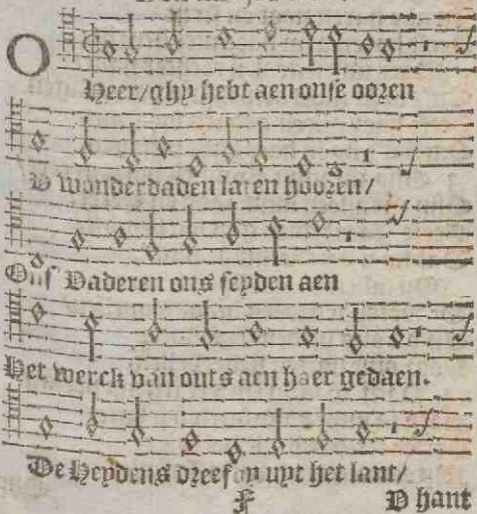 O
Heer/ghy hebt aen onse ooren
V wonderdaden laten hooren/
Ons Vaderen ons seyden aen
Het werck van outs aen haer gedaen.
De Heydens dreef dy uyt het lant/
F V hant